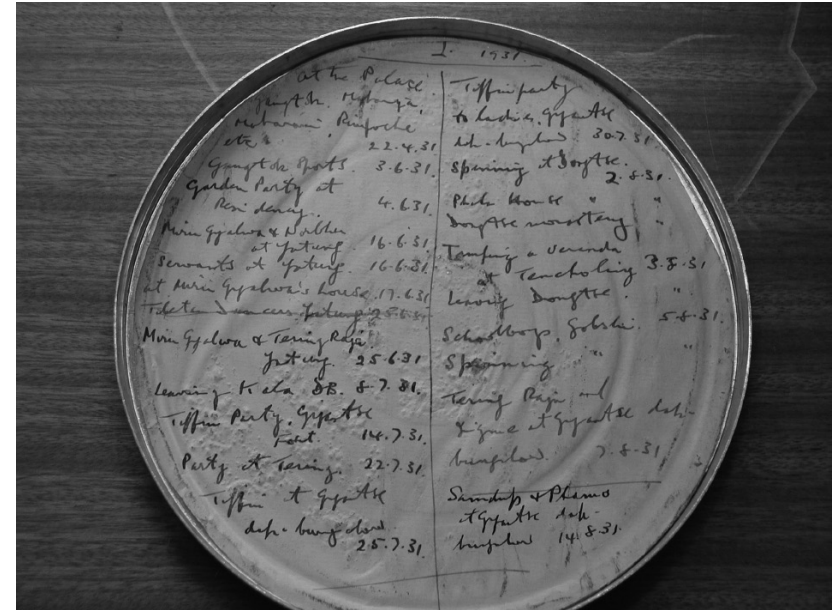 I. 1931.
At the Palace
Gangtok. Maharaja,
Maharani, Rinpoche
etc 22.4.31
Gangtok Sports. 3.6.31.
Garden Party at
Residency. 4.6.31.
Mirin Gyalwa & Norbhu
at Yatung. 16.6.31
Servants at Yatung. 16.6.31
at Mirin Gyalwa's house. 17.6.31
Tibetan Dancers Yatung 25.6.31
Mirin Gyalwa & Tering Raja
Yatung. 25.6.31
Leaving Kala DB. 8.7.31.
Tiffin Party, Gyantse
Fort. 14.7.31.
Party at Tering. 22.7.31.
Tiffin at Gyantse
dak-bungalow
25.7.31.
Tiffin party
to ladies, Gyantse
dak-bungalow 30.7.31.
Spinning at Dongtse.
2.8.31.
Phala House " "
Dongtse monastery "
Tamping a veranda
at Tencholing 3.8.31
Leaving Dongtse. "
Schoolboys, Gobshi. 5.8.31.
Spinning " "
Tering Raja and
Jigme at Gyantse dak-
bungalow. 7.8.31
Samdup & Phamo
at Gyantse dak-
bungalow 14.8.31.